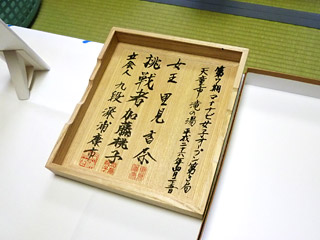 第七期マイナビ女子オープン第一局
天童市 滝の湯 平成二十六年四月
女王 里見香奈
挑戦者 加藤桃子
立会人 九段 深浦康市